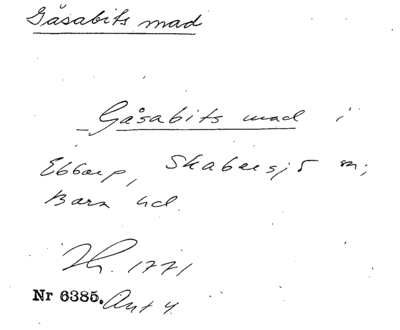 Gåsabits mad
Gåsabits mad i
Ebbarp, Skabersjö sn;
Bara hd.
Th. 1771
Nr 6385. Ant 4.